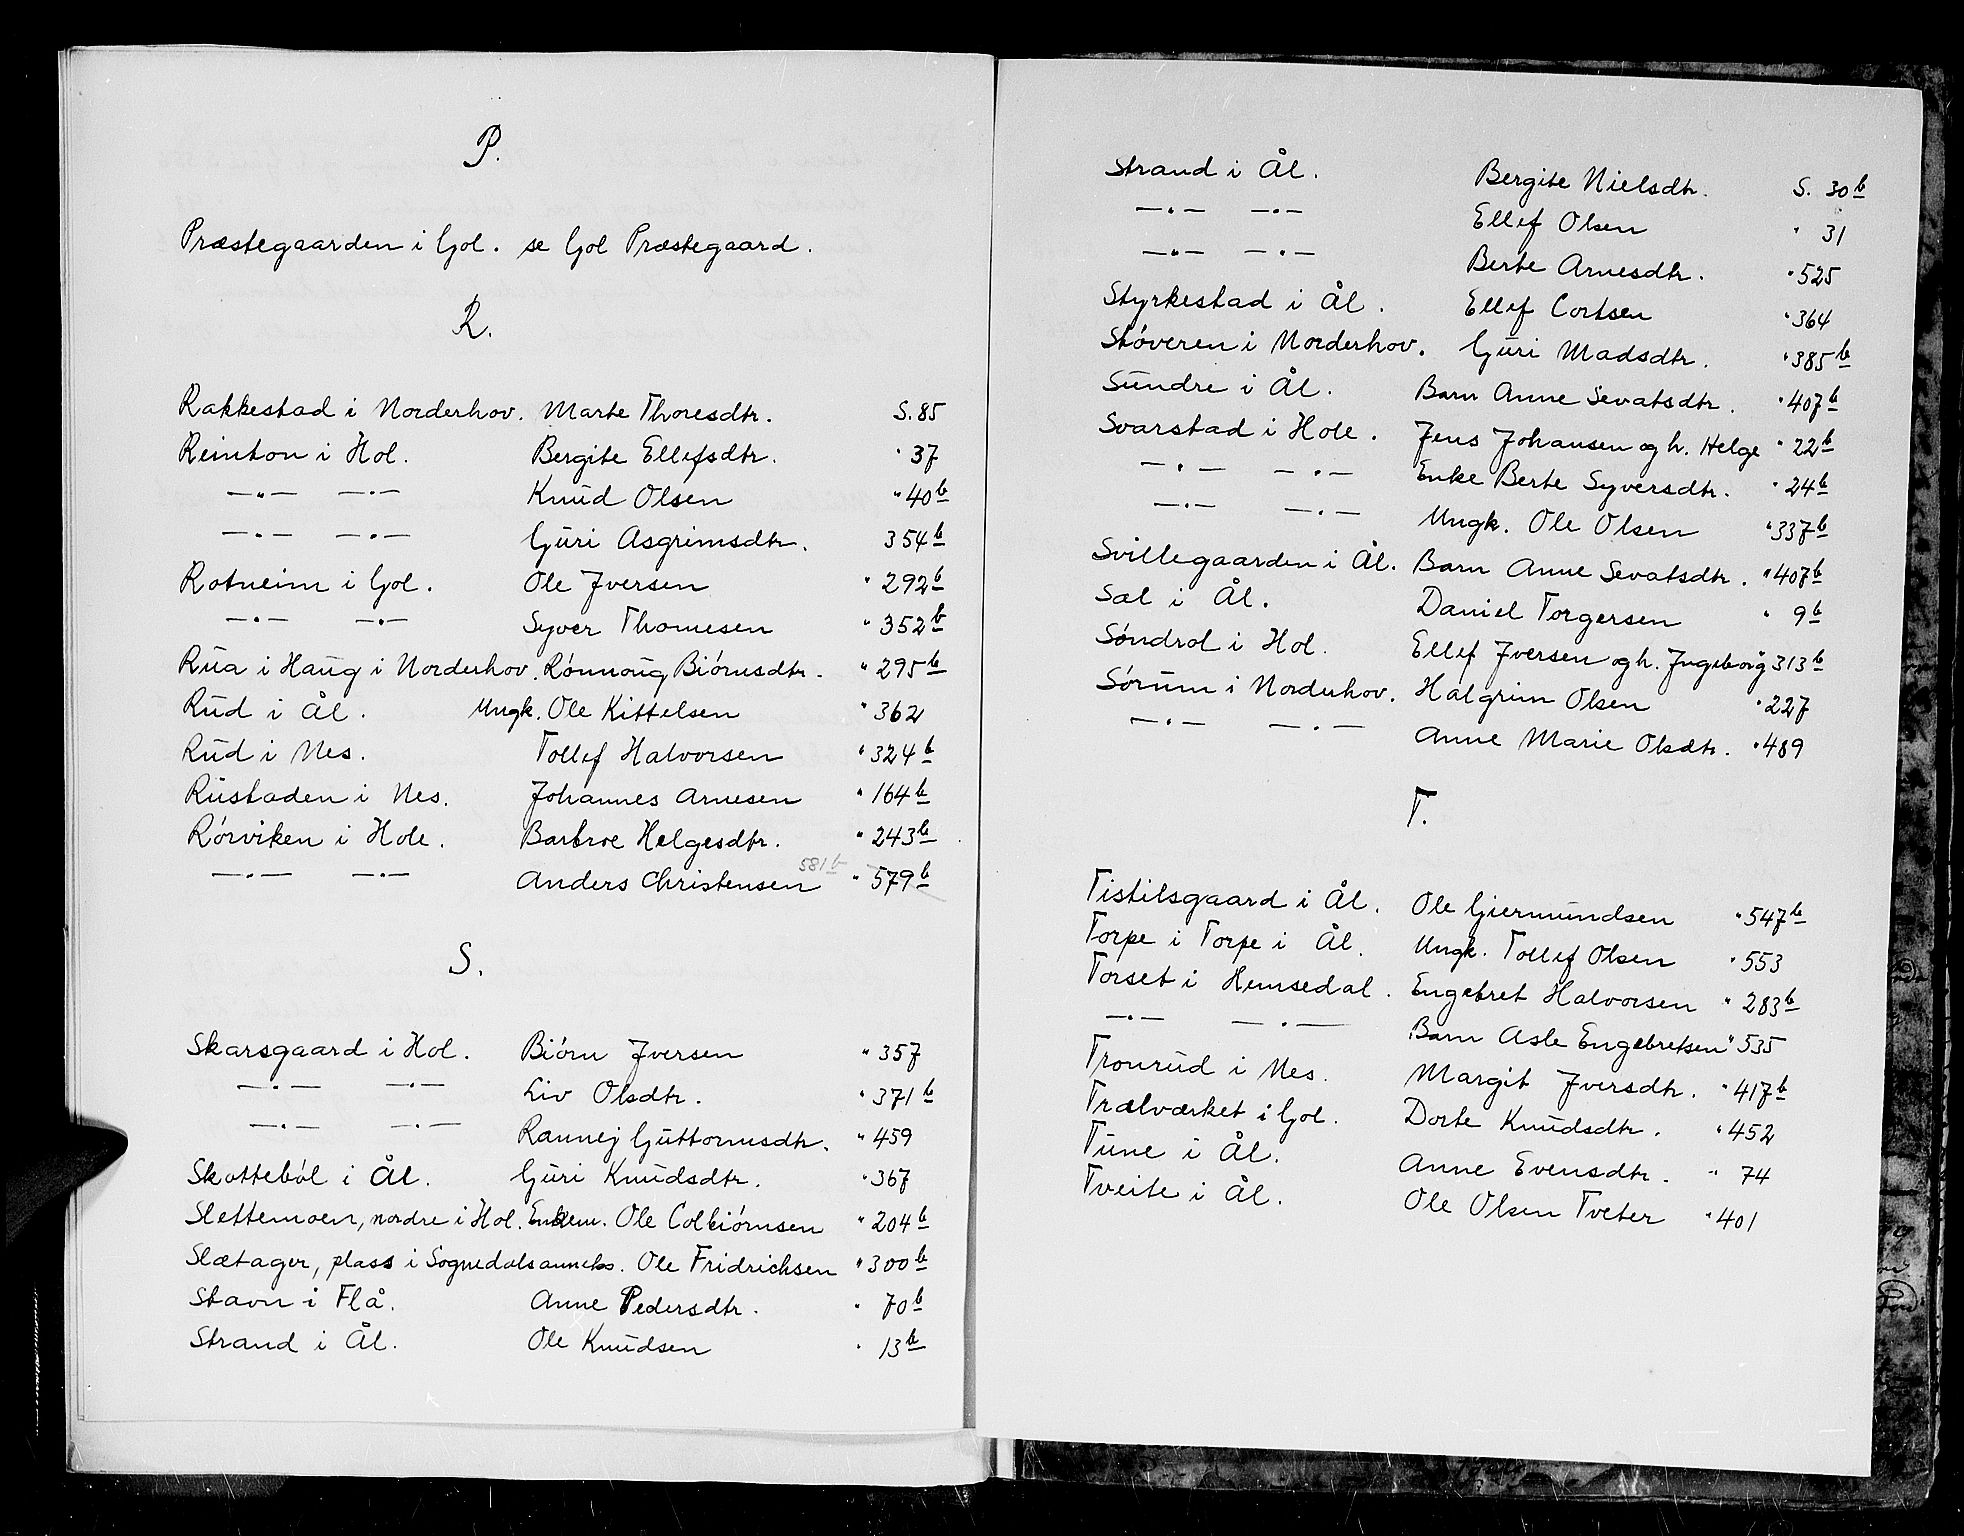 P.
Præstegaarden i Gol. se Gol Præstegaard.
R.
Rakkestad i Norderhov. Marte Thoresdtr. S. 85
Reinton i Hol. Bergite Ellefsdtr. " 37
—"— —"— Knud Olsen " 40 b
—"— —"— Guri Asgrimsdtr. 354 b
Rotneim i Gol. Ole Iversen " 292 b
—"— —"— Syver Thomesen " 352 b
Rua i Haug i Norderhov. Rønnoug Biørnsdtr. " 295 b
Rud i Ål. Ungk. Ole Kittelsen " 362
Rud i Nes. Tollef Halvorsen " 324 b
Rustaden i Nes. Johannes Arnesen " 164 b
Rørviken i Hole. Barbroe Helgesdtr. " 243 b
—"— —"— Anders Christensen 581 b " 579 b
S.
Skarsgaard i Hol. Biørn Iversen " 357
—"— —"— Liv Olsdtr. " 371 b
—"— —"— Rannej Guttormsdtr. " 459
Skottebøl i Ål. Guri Knudsdtr. " 367
Slettemoen, nordre i Hol. Enkem. Ole Colbiørnsen " 204 b
Slætager, plass i Sognedalsanneks. Ole Fridrichsen " 300 b
Stavn i Flå. Anne Pedersdtr. " 70 b
Strand i Ål. Ole Knudsen " 13 b
Strand i Ål. Bergite Nielsdtr. S. 30 b
—"— —"— Ellef Olsen " 31
—"— —"— Berte Arnesdtr. " 525
Styrkestad i Ål. Ellef Cortsen " 364
Støveren i Norderhov. Guri Madsdtr. " 385 b
Sundre i Ål. Barn Anne Sevatsdtr. " 407 b
Svarstad i Hole. Jens Johansen og h. Helge " 22 b
—"— —"— Enke Berte Syversdtr. " 24 b
—"— —"— Ungk. Ole Olsen " 337 b
Svillegaarden i Ål. Barn Anne Sevatsdtr. " 407 b
Sæl i Ål. Daniel Torgersen " 9 b
Søndrol i Hol. Ellef Iversen og h. Ingeborg 313 b
Sørum i Norderhov. Halgrim Olsen " 227
—"— —"— Anne Marie Olsdtr. " 489
T.
Tistilsgaard i Ål. Ole Giermundsen " 547 b
Torpe i Torpe i Ål. Ungk. Tollef Olsen " 553
Torset i Hemsedal. Engebret Halvorsen " 283 b
—"— —"— Barn Asle Engebretsen " 535
Tronrud i Nes. Margit Iversdtr. " 417 b
Trælværket i Gol. Dorte Knudsdtr. " 452
Tune i Ål. Anne Evensdtr. " 74
Tveite i Ål. Ole Olsen Tveter " 401